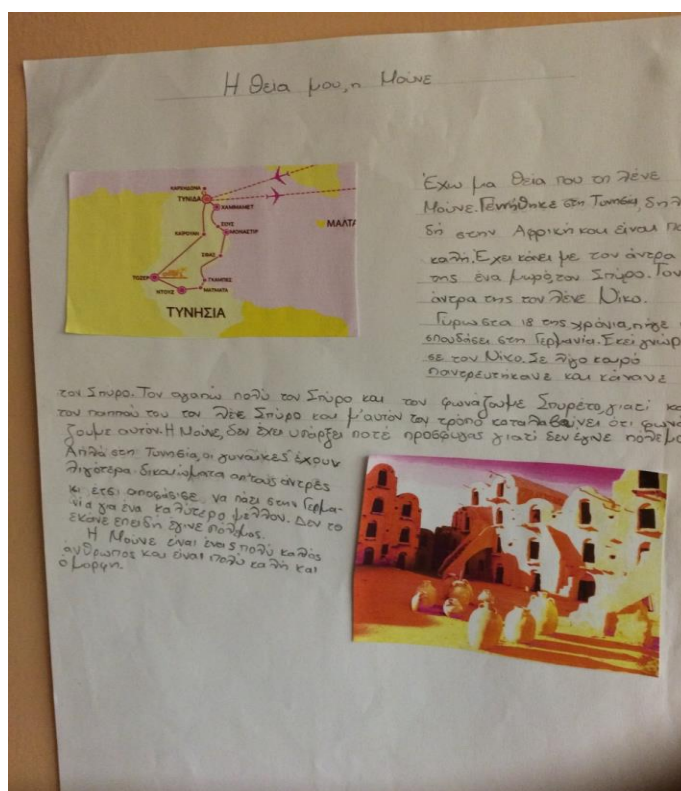 Η θεία μου, η Μούνε
ΚΑΡΧΗΔΟΝΑ
ΤΥΝΙΔΑ
ΧΑΜΜΑΜΕΤ
ΣΟΥΣ
ΜΟΝΑΣΤΙΡ
ΚΑΙΡΟΥΑΝ
ΜΑΛΤΑ
ΣΦΑΞ
ΤΟΖΕΡ
ΓΚΑΜΠΕΣ
ΝΤΟΥΣ
ΜΑΤΜΑΤΑ
ΤΥΝΗΣΙΑ
Έχω μια θεία που τη λένε
Μούνε. Γεννήθηκε στη Τυνησία, δηλ
δή στην Αφρική και είναι πο
καλή. Έχει κάνει με τον άντρα
της ένα μικρό, τον Σπύρο. Τον
άντρα της τον λένε Νίκο.
Γύρω στα 18 της χρόνια, πήγε
σπουδάσει στη Γερμανία. Εκεί γνώρι
σε τον Νίκο. Σε λίγο καιρό
παντρεύτηκανε και κάνανε
τον Σπύρο. Τον αγαπώ πολύ τον Σπύρο και τον φωνάζουμε Σπυρέτο, γιατί κα
τον παππού του τον λέσ Σπύρο και μ'αυτόν τον τρόπο καταλαβαίνει ότι φωνά
ζουμε αυτόν. Η Μούνε, δεν έχει υπάρξει ποτέ πρόσφυγας γιατί δεν έγινε πόλεμο
Απλά στη Τυνησία, οι γυναίκες έχουν
λιγότερα δικαιώματα απ'τους άντρες
κι έτσι αποφάσισε να πάει στην Γερμα-
νία για ένα καλύτερο μέλλον. Δεν το
έκανε επειδή έγινε πόλεμος.
Η Μούνε είναι ένας πολύ καλός
άνθρωπος και είναι πολύ καλή και
όμορφη.